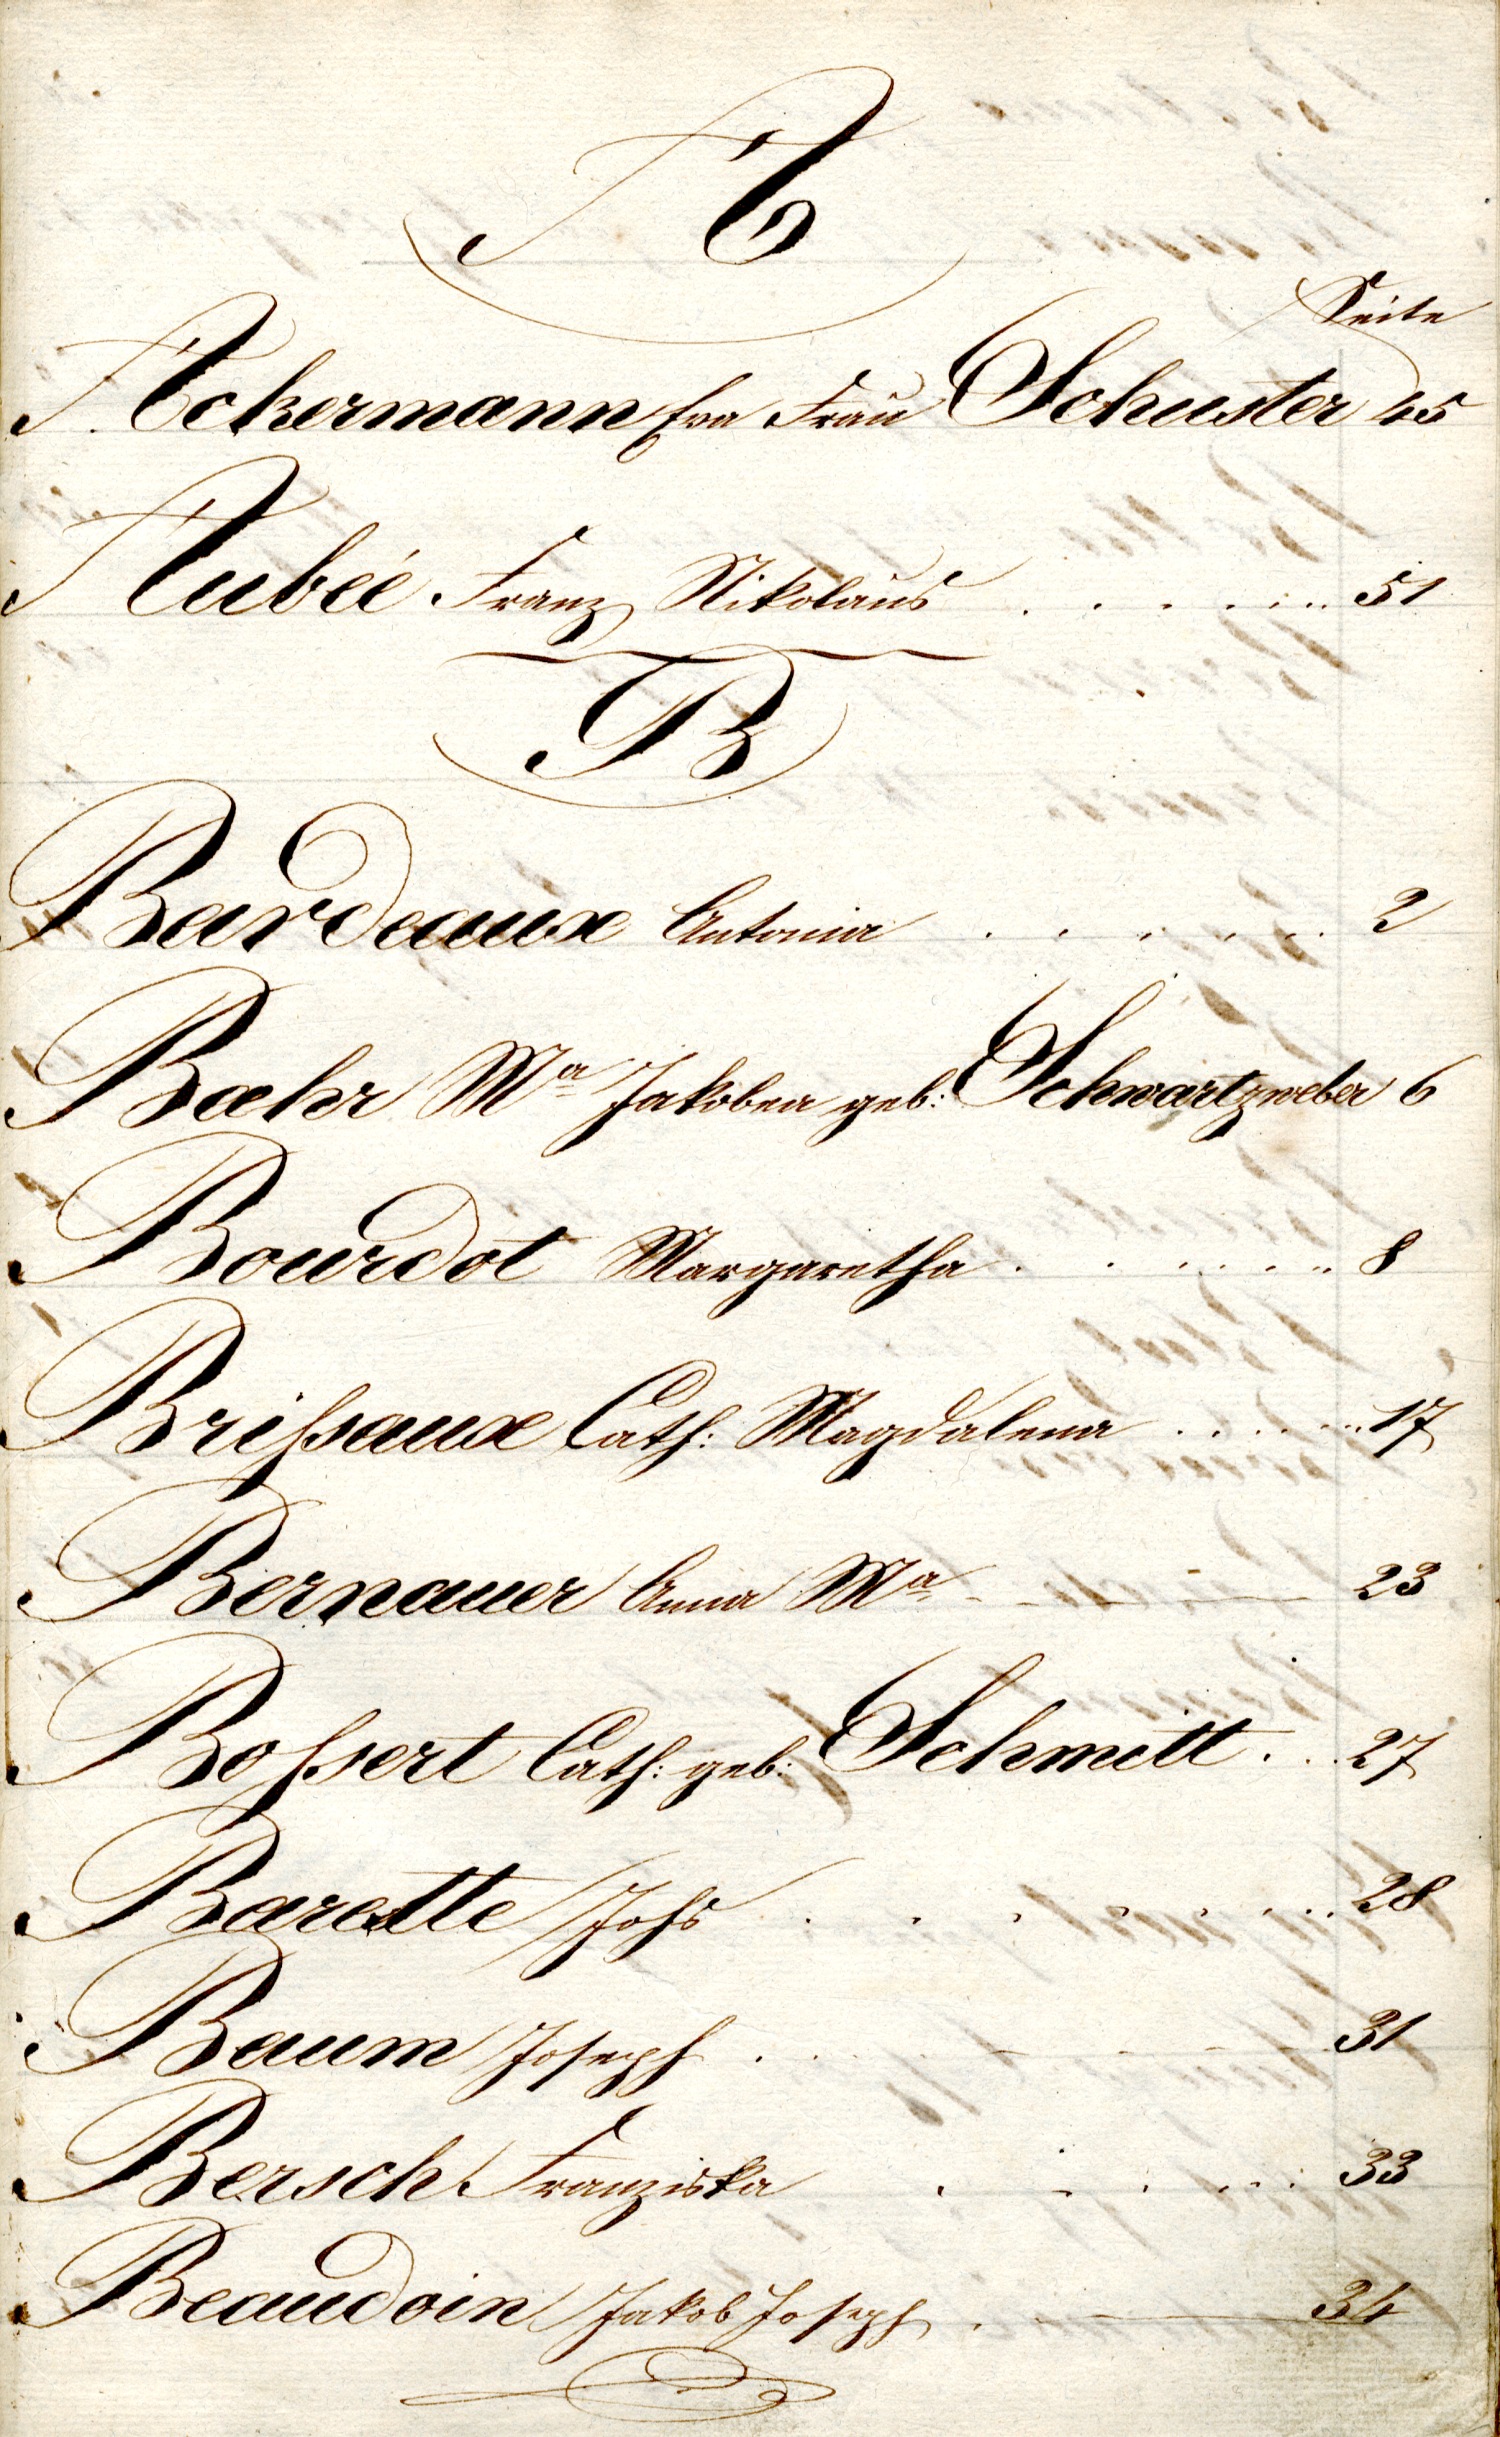 A
Seite
Ackermann Eva Frau Schuster 45
Aubeé Franz Nikolaus . . . . . . . 51
B
Bardeaux Antonia . . . . . . 2
Baehr Ma Jakobea geb: Schwartzweber 6
Bourdot Margaretha . . . . . . . 8
Brißaux Cath: Magdalena . . . . . . 17
Bernauer Anna Ma - - - 23
Boßert Cath: geb: Schmitt . . . 27
Barette Johs . . . . . . . . 28
Baum Joseph . . . . - - - 31
Bersch Franziska . . . . . . 33
Beaudoin Jakob Joseph . — 34